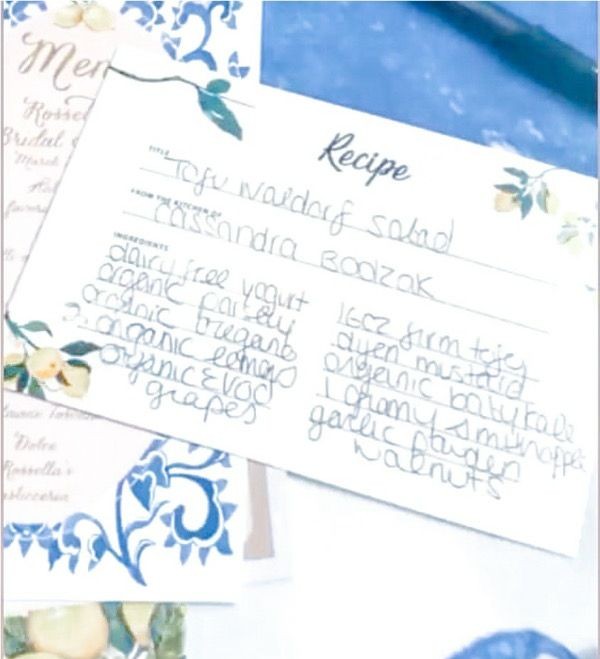 Men
'Rosse
Bridal
March
favori
Recipe
TITLE
Tofu Waldorf Salad
FROM THE KITCHEN OF
Cassandra Bodzak
INGREDIENTS
dairy free yogurt
organic parsely
organic oregano
2 organic lemons
organic EVOO
grapes
16oz firm tofu
dyen mustard
organic baby kale
1 granny smith apple
garlic powder
walnuts
'Dolce
Rossella's
asticceria